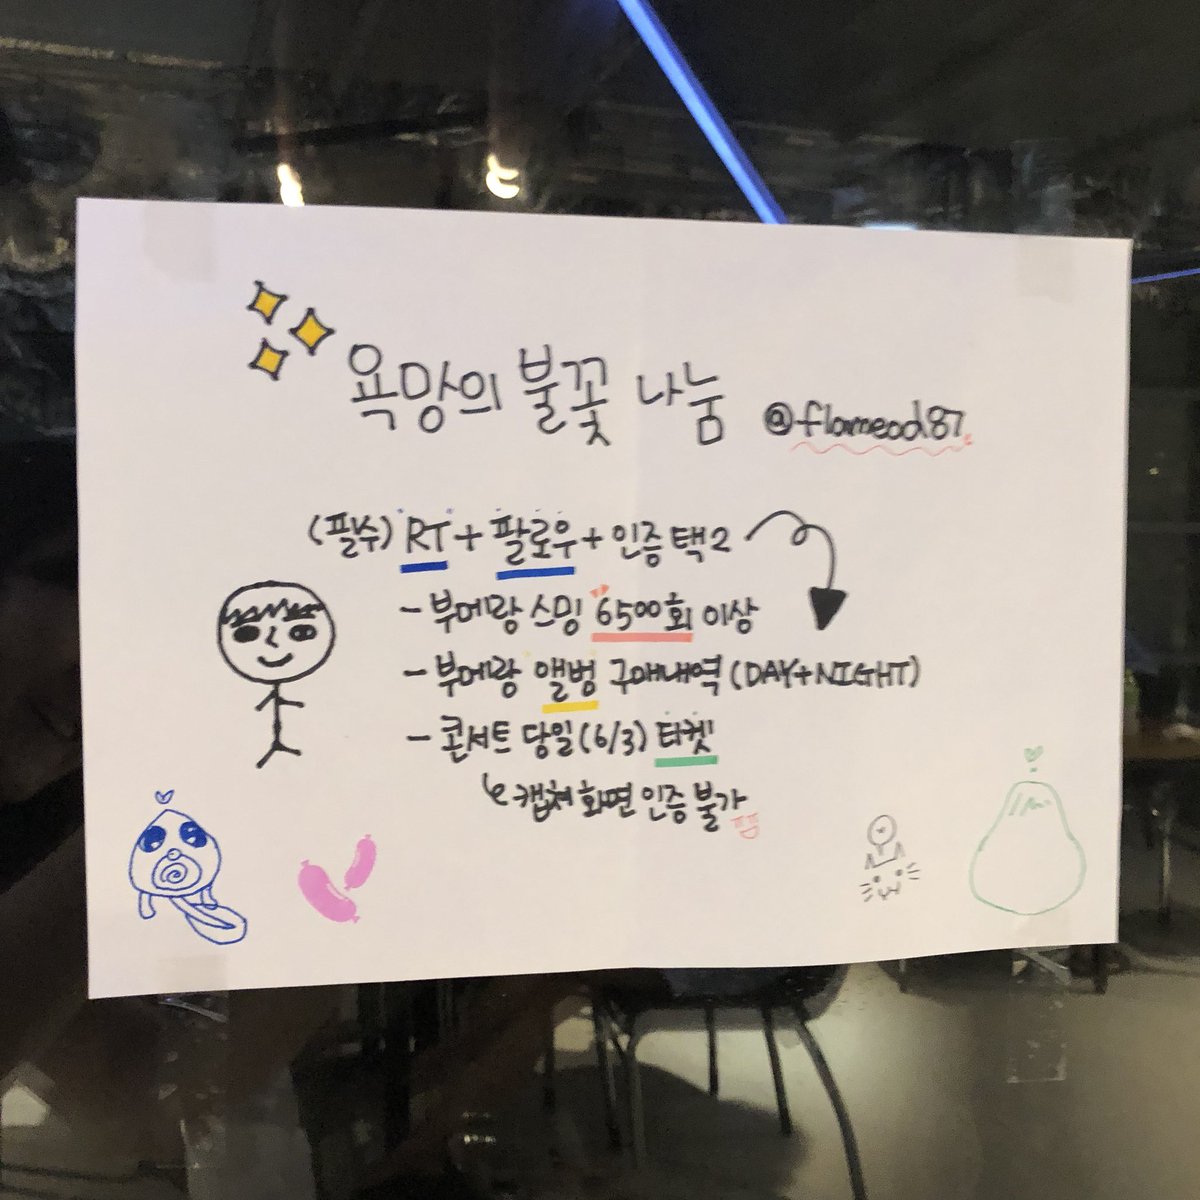 욕망의 불꽃 나눔 @flameod87
(필수) RT + 팔로우 + 인증 택2
- 부메랑 스밍 6500회 이상
- 부메랑 앨범 구매내역 (DAY+NIGHT)
- 콘서트 당일 (6/3) 티켓
캡쳐 화면 인증 불가 ㅠㅠ